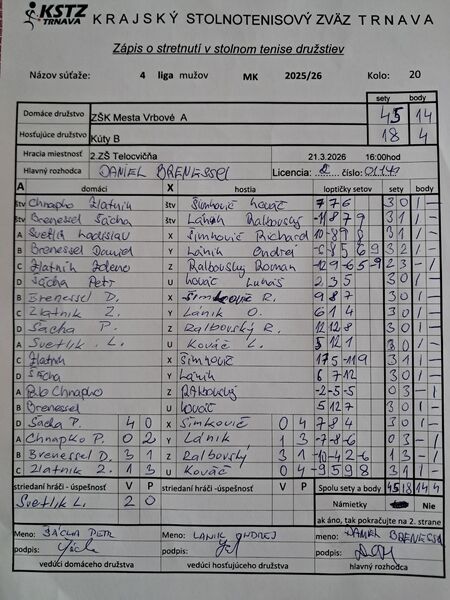 KSTZ TRNAVA KRAJSKÝ STOLNOTENISOVÝ ZVÄZ TRNAVA
Zápis o stretnutí v stolnom tenise družstiev
Názov súťaže: 4 liga mužov MK 2025/26 Kolo: 20
sety body
Domáce družstvo ZŠK Mesta Vrbové A 45 14
Hosťujúce družstvo Kúty B 18 4
Hracia miestnosť 2.ZŠ Telocvičňa 21.3.2026 16:00hod
Hlavný rozhodca DANIEL BRENESSEL Licencia: číslo: 01477
A domáci X hostia loptičky setov sety body
štv Chnapko Zlatník štv Šimkovič Kováč 7 7 6 3 0 1 -
štv Brenessel Sácha štv Lánik Ralbovský -11 8 7 9 3 1 1 -
A Svetlík Ladislav X Šimkovič Richard 3 1 1 -
B Brenessel Daniel Y Lánik Ondrej -6 8 5 6 9 3 2 1 -
C Zlatník Zdeno Z Ralbovský Roman -12 9 -6 5 -9 2 3 - 1
D Sácha Petr U Kováč Lukáš 2 3 5 3 0 1 -
B Brenessel D. X Šimkovič R. 9 8 7 3 0 1 -
C Zlatník Z. Y Lánik O. 6 1 4 3 0 1 -
D Sácha P. Z Ralbovský R. 12 12 8 3 0 1 -
A Svetlík L. U Kováč L. 5 12 1 3 0 1 -
C Zlatník X Šimkovič 3 1 1 -
D Sácha Y Lánik 6 7 12 3 0 1 -
A Chnapko Z Ralbovský -2 -5 -5 0 3 - 1
B Brenessel U Kováč 5 12 7 3 0 1 -
D Sácha P. 4 0 X Šimkovič 0 4 7 8 4 3 0 1 -
A Chnapko P. 0 2 Y Lánik 1 3 -7 -8 -6 0 3 - 1
B Brenessel D. 3 1 Z Ralbovský 3 1 -10 -4 2 -6 1 3 - 1
C Zlatník Z. 1 3 U Kováč 0 4 -9 5 9 8 3 1 1 -
striedaní hráči - úspešnosť V P striedaní hráči - úspešnosť V P Spolu sety a body 45 18 14 4
Svetlík L. 2 0 Námietky Nie
ak áno, tak pokračujte na 2. strane
Meno: SÁCHA PETR Meno: LANIK ONDREJ Meno: DANIEL BRENESSEL
podpis: podpis: podpis:
vedúci domáceho družstva vedúci hosťujúceho družstva hlavný rozhodca